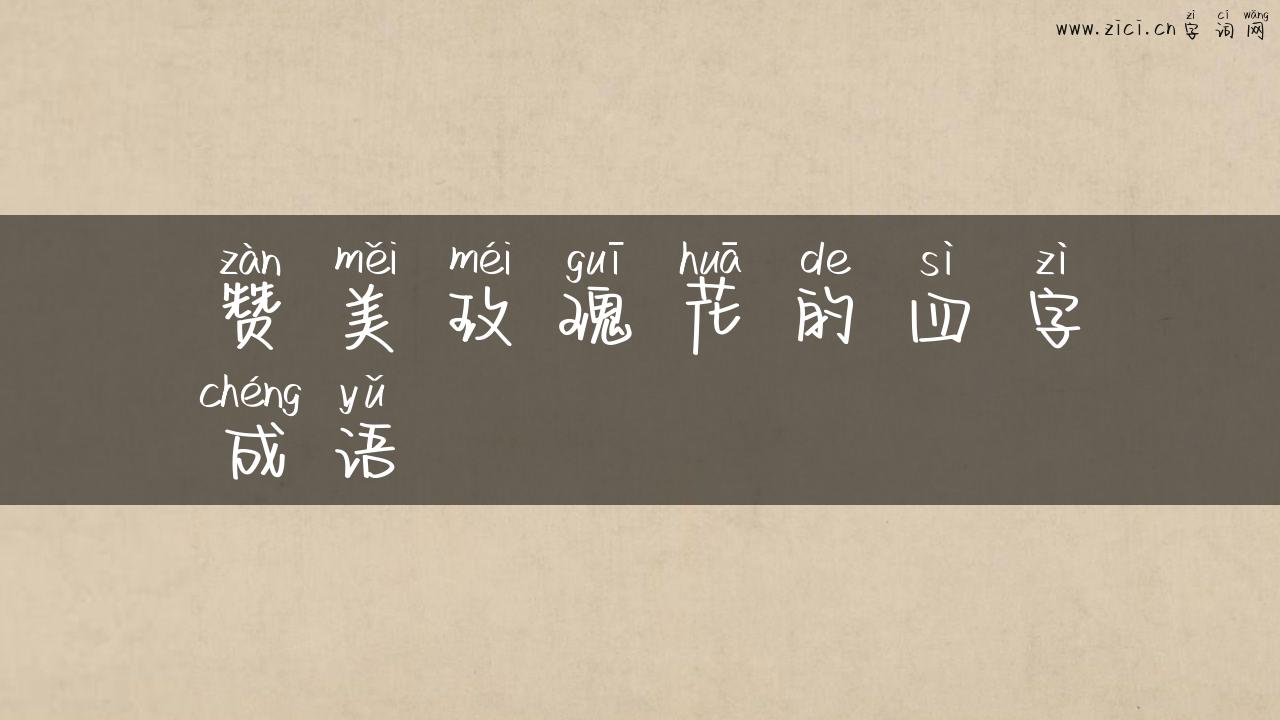 zì cí wǎng
www.zici.cn 字词网
zàn měi méi guī huā de sì zì
赞美玫瑰花的四字
chéng yǔ
成语